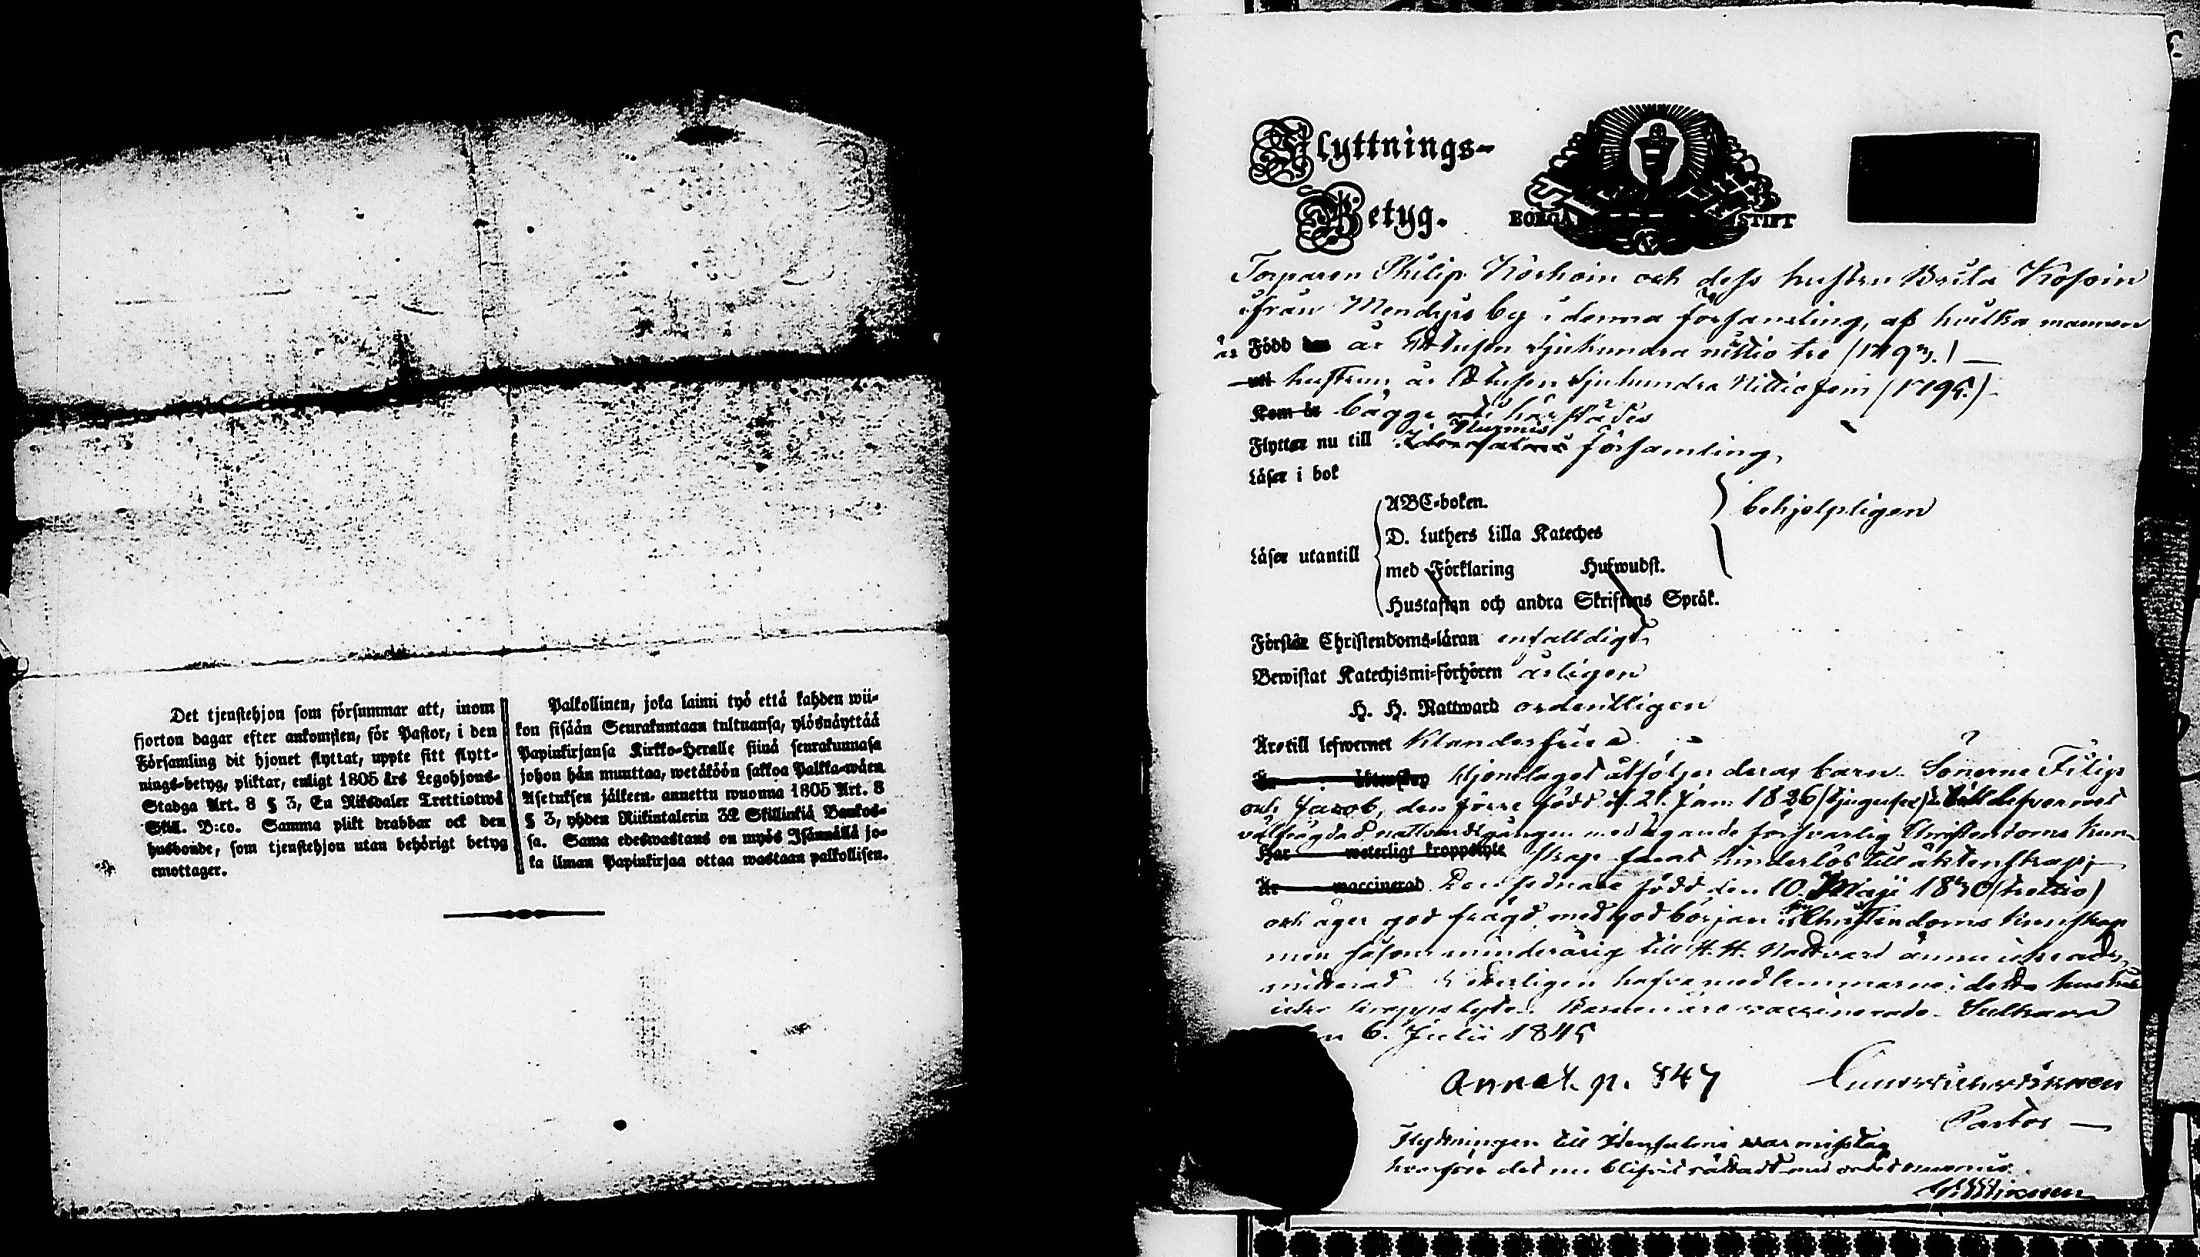 Det tjenstehjon som försummar att, inom
fjorton dagar efter ankomsten, för Pastor, i den
Församling dit hjonet flyttat, uppte sitt flytt-
nings-betyg, pliktar, enligt 1805 års Legohjons-
Stadga Art. 8 § 3, En Riksdaler Trettiotwå
Skill. B:co. Samma plikt drabbar ock den
husbonde, som tjenstehjon utan behörigt betyg
emottager.
Palkollinen, joka laimi lyö että kahden wii-
kon sisään Seurakuntaan tultuansa, ylösnäyttää
Papinkirjansa Kirkko-Heralle siinä seurakunnasa
johon hän muuttaa, wetäköön sakkoa Palkka-wäen
Asetuksen jälkeen, annettu wuonna 1805 Art. 8
§ 3, yhden Riikintalerin 32 Skillinkiä Bankos-
sa. Sama edeswastaus on myös Isännällä jo-
ka ilman Papinkirjaa ottaa wastaan palkollisen.
Flyttnings-
Betyg.
BORGÅ STIFT
Torparen Philip och dess hustru Brita
ifrån by i denna församling, af hvilka mannen
är Född den år Ettusen sjuhundra nittio tre (1793.)
uti hustrun år Ettusen sjuhundra Nittiofem (1795.)
Kom år bägge härstädes
Nurmis
Flyttar nu till Idensalmi församling,
Läser i bok
Läser utantill
ABC-boken.
D. Luthers Lilla Kateches
med Förklaring Hufwudst.
Hustaflan och andra Skriftens Språk.
behjelpligen
Förstår Christendoms-läran enfalldigt
Bewistat Katechismi-förhören årligen
H. H. Nattward ordentligen
Är till lefwernet klanderfria
åtföljer deras barn Sönerne Filip
och Jacob, den förre född d. 2. Jan. 1826 till lefvernet
välfrägdad nattvardsgången med ägande försvarlig Christendoms kun-
Har weterligt kroppslyte skap samt hinderlös till äktenskap;
Är waccinerad Den sednare född den 10. Maji 1830 (trettio)
och äger god frägd, med god början i Christendoms kunskap
men såsom minderårig till H. H. Nattvard ännu icke ad-
mitterad hafva medlemmarne i detta hushåll
icke kroppslyte. Barnen äro vaccinerade. Sulkava
6. Julii 1845
Annot. p. 847
Pastor
Flyttningen till Idensalmi var misstag
hvarföre det nu blifvit rättadt med